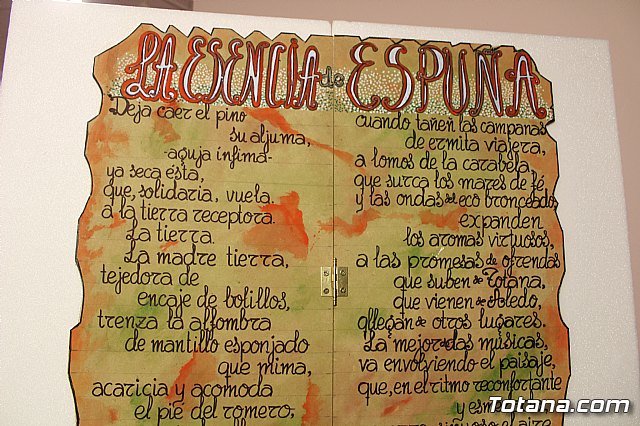 LA ESENCIA de ESPUÑA
Deja caer el pino
su aljuma,
-aguja ínfima-
ya seca ésta,
que, solidaria, vuela
a la tierra receptora.
La tierra.
La madre tierra,
tejedora de
encaje de bolillos,
trenza la alfombra
de mantillo esponjado
que mima,
acaricia y acomoda
el pie del romero;
cuando tañen las campanas
de ermita viajera,
a lomos de la carabela
que surca los mares de fé
y las ondas de eco bronceado
expanden
los aromas virtuosos,
a las promesas de ofrendas
que suben de Totana,
que vienen de Aledo,
q llegan de otros lugares.
La mejor de las músicas,
va envolviendo el paisaje,
que, en el ritmo reconfortante
el aire
Totana.com